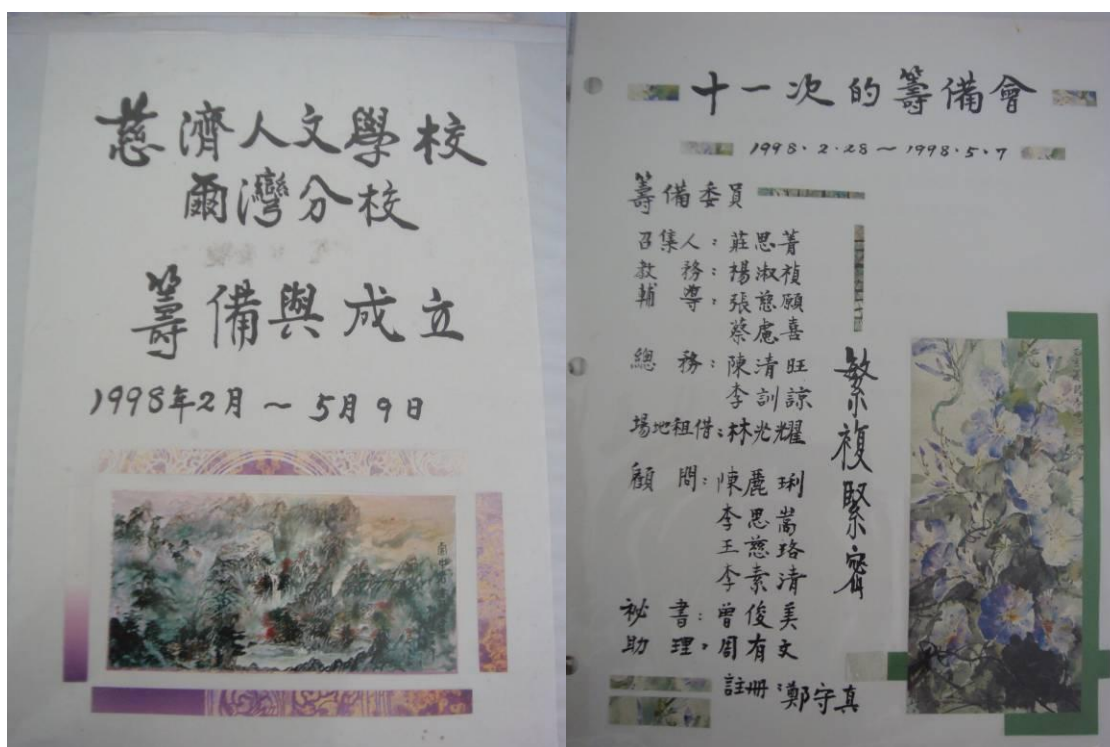 慈濟人文學校
爾灣分校
籌備與成立
1998年2月 ~ 5月9日
十一次的籌備會
1998·2·28 ~ 1998·5·7
籌備委員
召集人：莊思菁
教 務：楊淑禎
輔 導：張慈願
蔡慮喜
總 務：陳清旺
李訓諒
場地租借：林兆耀
顧 問：陳麗琍
李思嵩
王慈珞
李素清
祕 書：曾俊美
助 理：周有文
註冊：鄭守真
繁複緊密